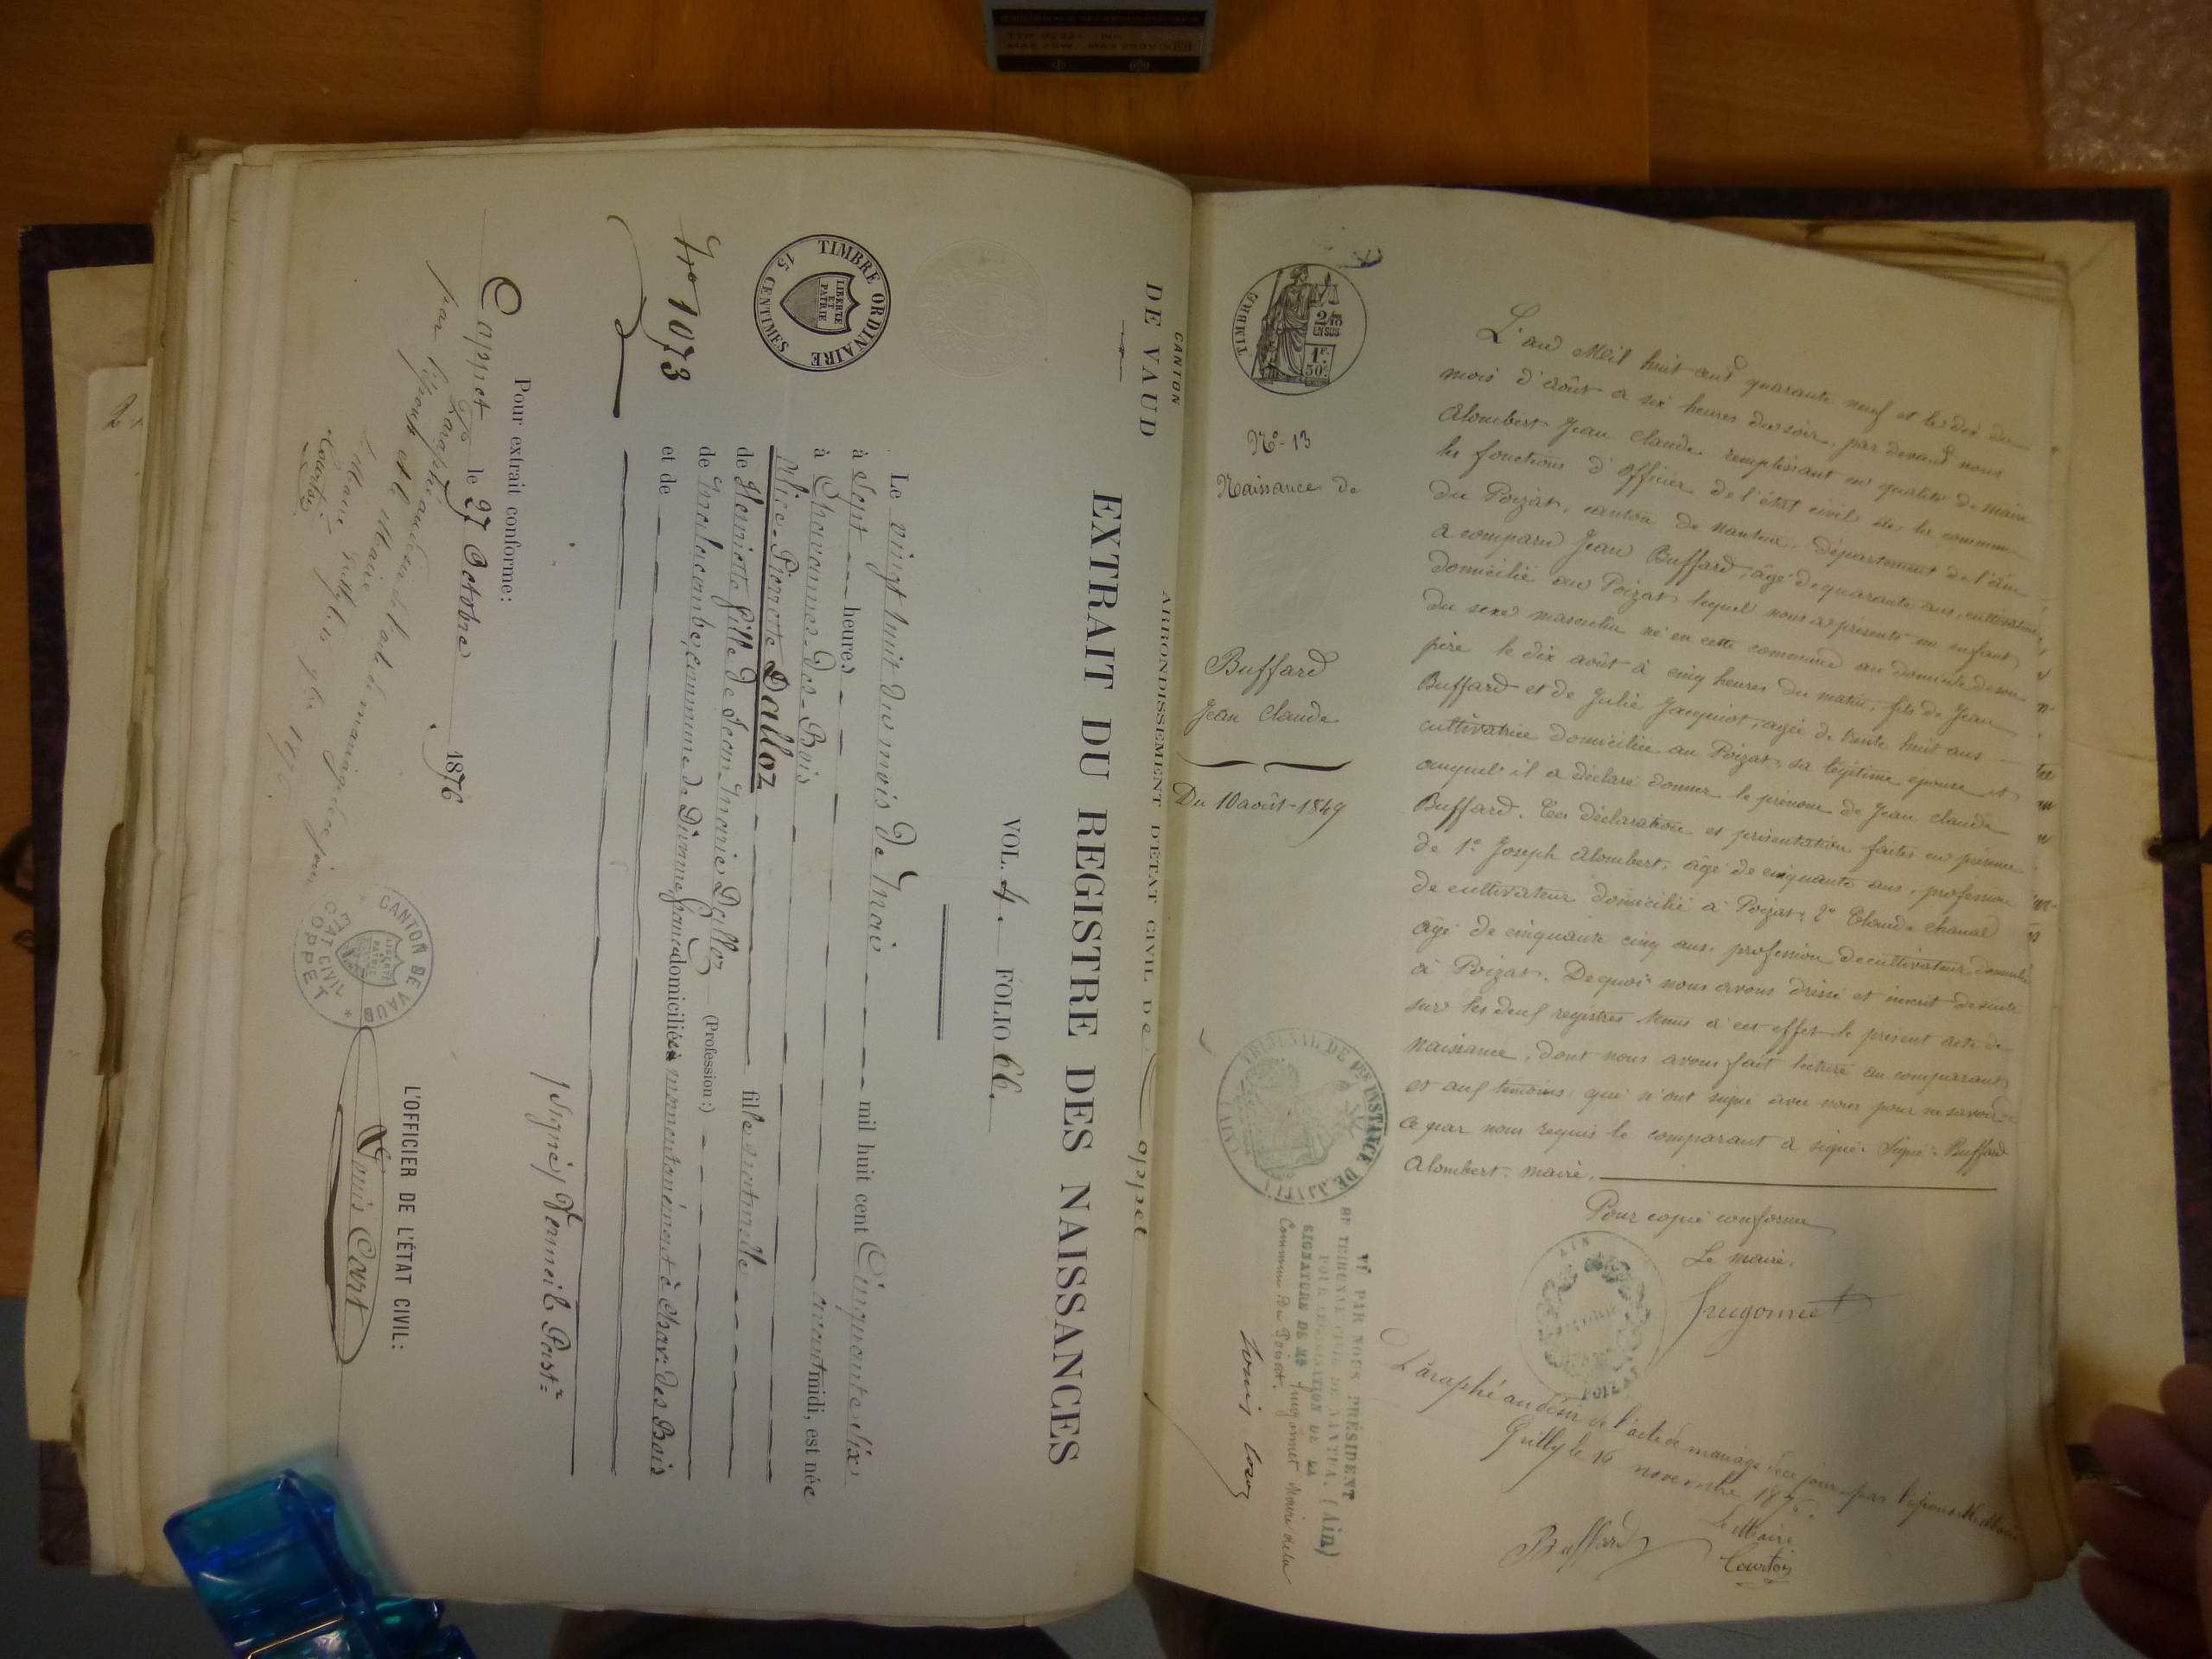 CANTON
DE VAUD
ARRONDISSEMENT D'ÉTAT CIVIL DE Coppet
EXTRAIT DU REGISTRE DES NAISSANCES
VOL. 4. FOLIO 66.
TIMBRE ORDINAIRE
15 CENTIMES
LIBERTÉ
ET
PATRIE
No 1073
Le vingt huit du mois de Mai mil huit cent Cinquante six
à sept heures avant midi, est née
à Chavannes-des-Bois
Alice-Pierrette Dalloz
de Henriette fille de Jean Marie Dalloz fille naturelle
de Malacombe, commune de Divonne, france (Profession:)
et de domiciliée momentanément à Chav: des Bois
(Signé) Verneil Past:r
Pour extrait conforme:
Coppet le 27 Octobre 1876
L'OFFICIER DE L'ÉTAT CIVIL:
Louis Cart
CANTON DE VAUD
ÉTAT CIVIL
COPPET
LIBERTÉ
ET
PATRIE
Paraphé au désir de l'acte de mariage de ce jour
par l'épouse et le Maire
Le Maire
Courtois
TIMBRE
2/10
EN SUS
1F.
50c.
No 13
Naissance de
Buffard
Jean Claude
Du 10 août 1849
L'an Mil huit cent quarante neuf et le dix du
mois d'août a six heures du soir, par devant nous
Alombert Jean Claude remplissant en qualité de maire
les fonctions d'officier de l'état civil de la commune
du Poizat, canton de nantua, département de l'ain
a comparu Jean Buffard, âgé de quarante ans, cultivateur
domicilié au Poizat lequel nous a présenté un enfant
du sexe masculin né en cette commune au domicile de son
père le dix août à cinq heures du matin, fils de Jean
Buffard et de Julie Jacquinot, agée de trente huit ans
cultivatrice domiciliée au Poizat, sa légitime épouse et
auquel il a déclaré donner le prénom de Jean Claude
Buffard. Les déclaration et présentation faites en présence
de 1o Joseph Alombert, âgé de cinquante ans, profession
de cultivateur domicilié à Poizat; 2o Claude Chanal
âgé de cinquante cinq ans, profession de cultivateur domicilié
à Poizat. De quoi nous avons dressé et inscrit de suite
sur les deux registres tenus à cet effet le présent acte de
naissance, dont nous avons fait lecture au comparant
et aux témoins, qui n'ont signé avec nous pour ne savoir
ce par nous requis le comparant a signé. Signé: Buffard
Alombert. maire.
Pour copie conforme
Le maire.
Jugonnet
TRIBUNAL DE 1RE INSTANCE DE
VU PAR NOUS PRÉSIDENT
DU TRIBUNAL CIVIL DE NANTUA, (Ain)
POUR LÉGALISATION DE LA
SIGNATURE DE Mr Jugonnet Maire de la
Commune du Poizat.
Paraphé au désir de l'acte de mariage de ce jour par l'épouse et Mr le Maire
Grilly le 16 novembre 1876.
Le Maire
Courtois
Buffard